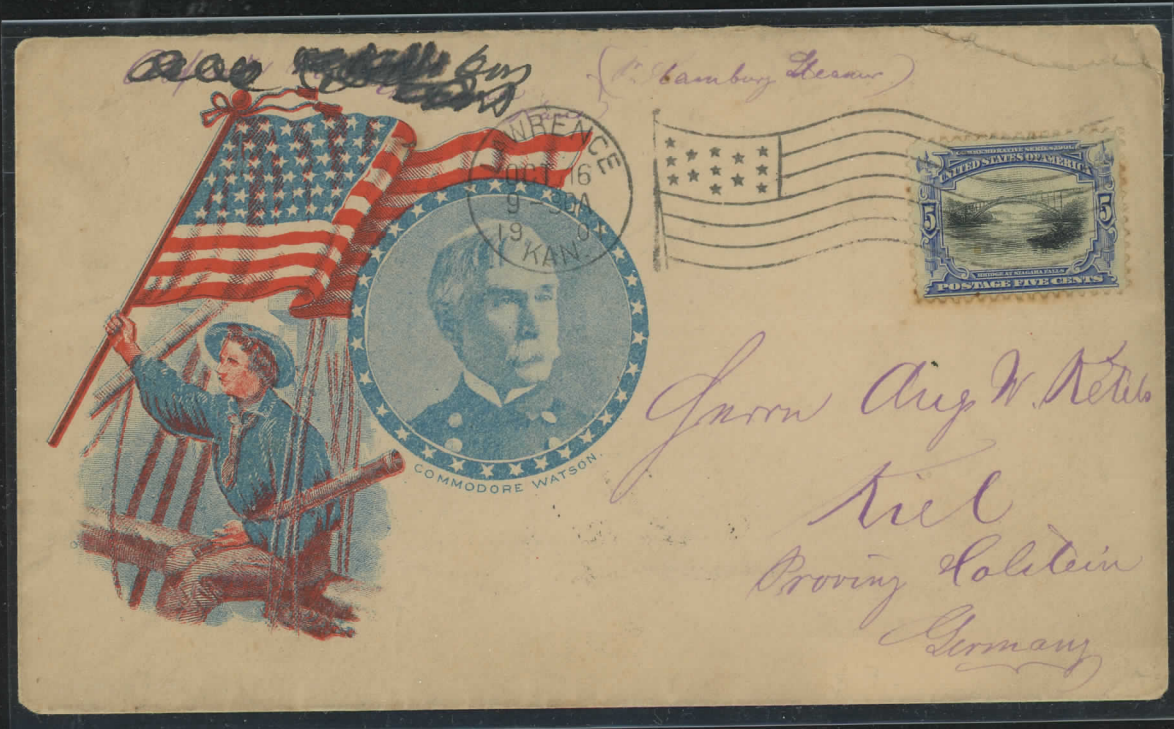 (Hamburg Steamer)
LAWRENCE
OCT 16
9-30A
19
KAN.
COMMEMORATIVE SERIES, 1901
UNITED STATES OF AMERICA
5 5
BRIDGE AT NIAGARA FALLS
POSTAGE FIVE CENTS
COMMODORE WATSON.
Herrn Aug W.
Kiel
Proving Holstein
Germany